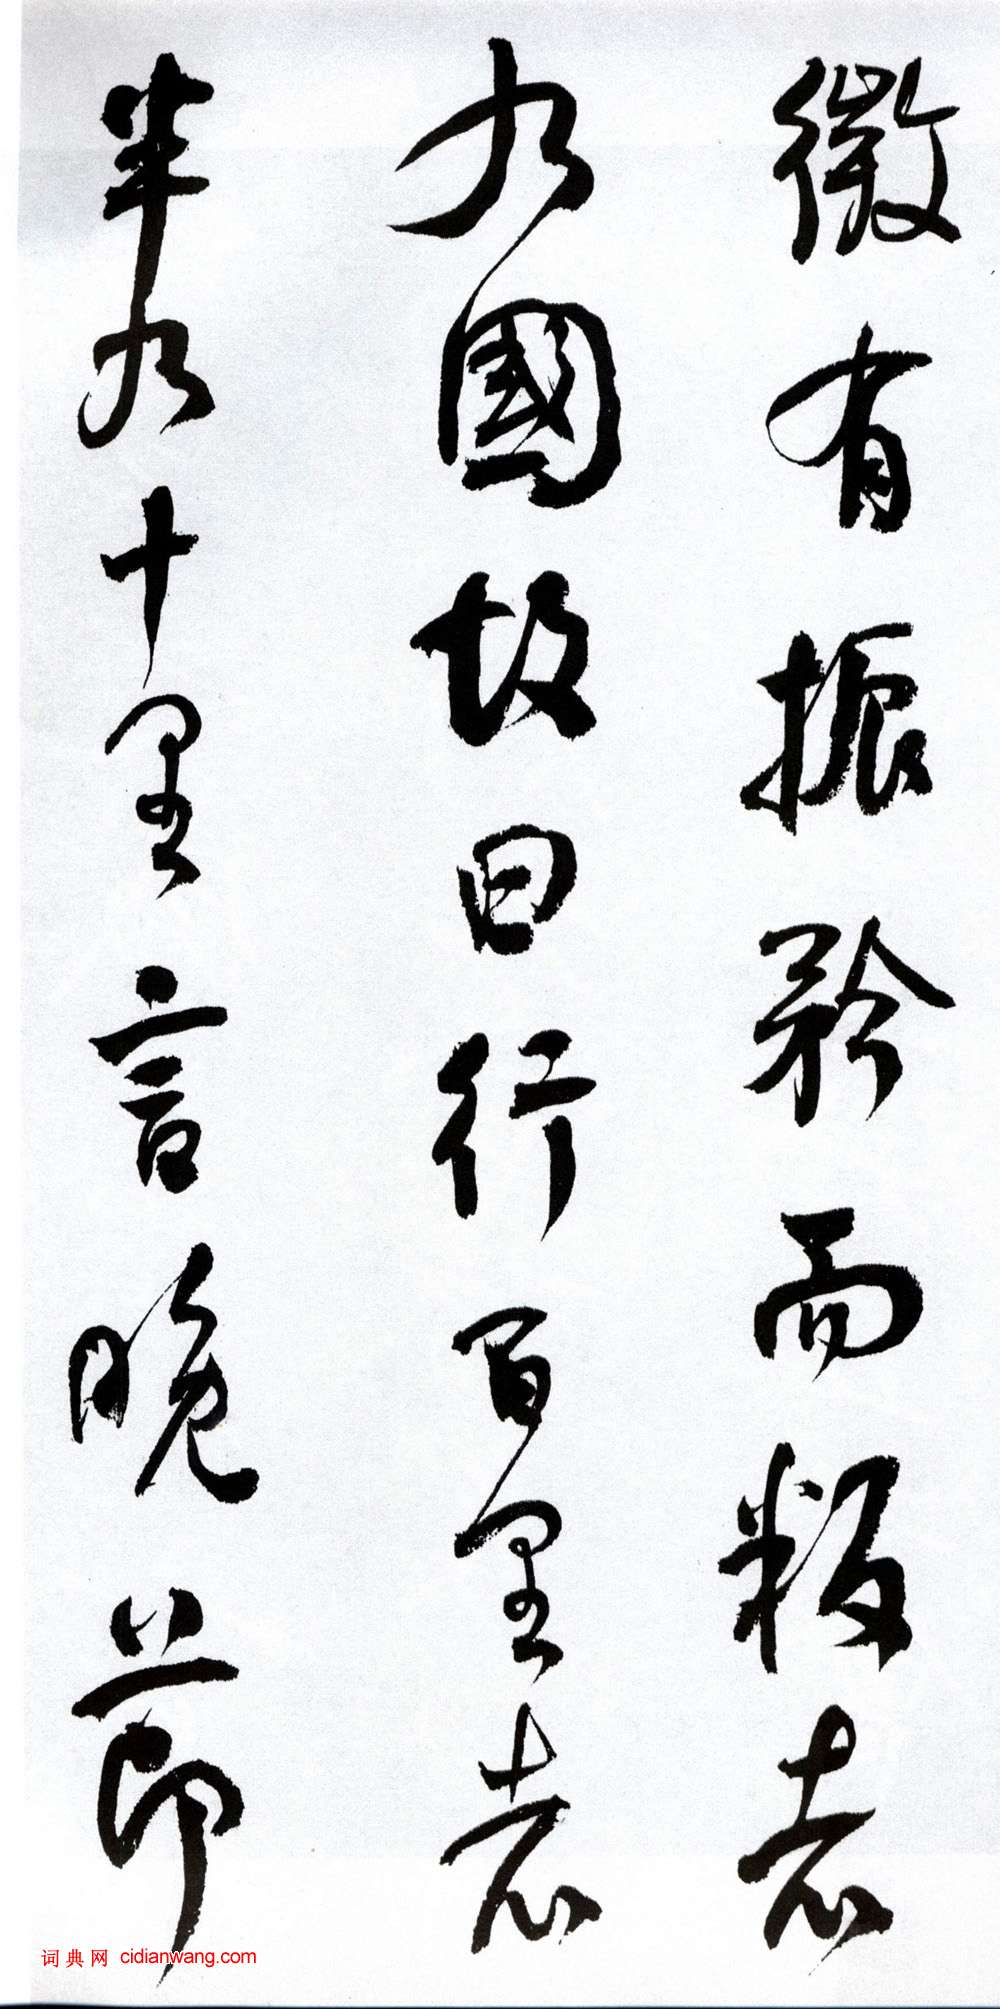 微有振矜而叛者
九國故曰行百里者
半九十里言晚節
词典网 cidianwang.com